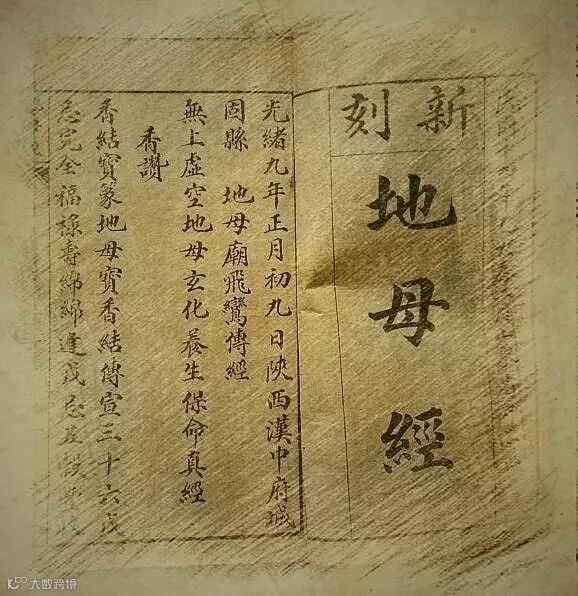 新刻
地母經
光緒九年正月初九日陝西漢中府城
固縣 地母廟飛鸞傳經
無上虛空地母玄化養生保命真經
香讚
香結寶篆地母寶香結傳宣三十六戊
忌完全福祿壽綿綿逢戊忌五穀豐
大数跨境